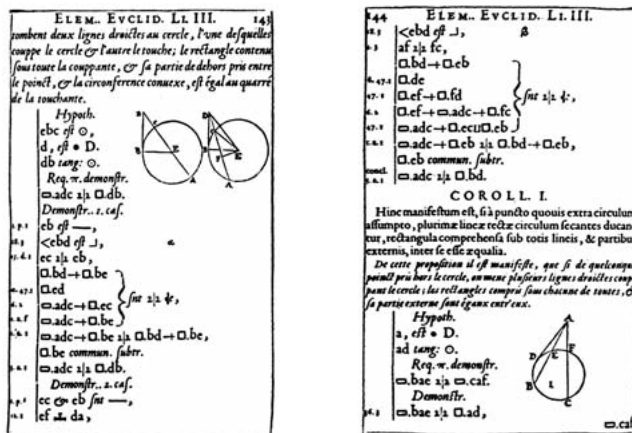 ELEM.. EVCLID. LI. III. 143
tombent deux lignes droictes au cercle, l'vne desquelles
couppe le cercle & l'autre le touche; le rectangle contenu
sous toute la couppante, & sa partie de dehors pris entre
le poinct, & la circonference conuexe, est égal au quarré
de la touchante.
Hypoth.
ebc est ⊙,
d, est • D.
db tang: ⊙.
Req. π. demonstr.
▭.adc 2|2 □.db.
Demonstr.. 1. cas.
1.p.1 eb est —,
18.3 <ebd est ⅃, α
15.d.1 ec 2|2 eb,
□.bd→□.be
47.1 □.ed
6.2 ▭.adc→□.ec
▭.adc→□.be
snt 2|2
▭.adc→□.be 2|2 □.bd→□.be,
□.be commun. subtr.
3.a.1 ▭.adc 2|2 □.db.
Demonstr.. 2. cas.
1.p.1 ec & eb snt —,
12.1 ef ⊥ da,
144 ELEM.. EVCLID. LI. III.
18.3 <ebd est ⅃, β
3.3 af 2|2 fc,
□.bd→□.eb
47.1 □.de
47.1 □.ef→□.fd
6.2 □.ef→▭.adc→□.fc
47.1 ▭.adc→□.ecu□.eb
snt 2|2
1.a.1 ▭.adc→□.eb 2|2 □.bd→□.eb,
□.eb commun. subtr.
concl.
3.a.1 ▭.adc 2|2 □.bd.
COROLL. I.
Hinc manifestum est, si à puncto quouis extra circulum
assumpto, plurimæ lineæ rectæ circulum secantes ducan
tur, rectangula comprehensa sub totis lineis, & partibus
externis, inter se esse æqualia.
De cette proposition il est manifeste, que si de quelconque
poinct pris hors le cercle, on mene plusieurs lignes droictes coup
pant le cercle; les rectangles compris sous chacune de toutes, &
sa partie externe sont égaux entr'eux.
Hypoth.
a, est • D.
ad tang: ⊙.
Req. π. demonstr.
▭.bae 2|2 ▭.caf.
Demonstr.
36.3 ▭.bae 2|2 □.ad,
▭.caf